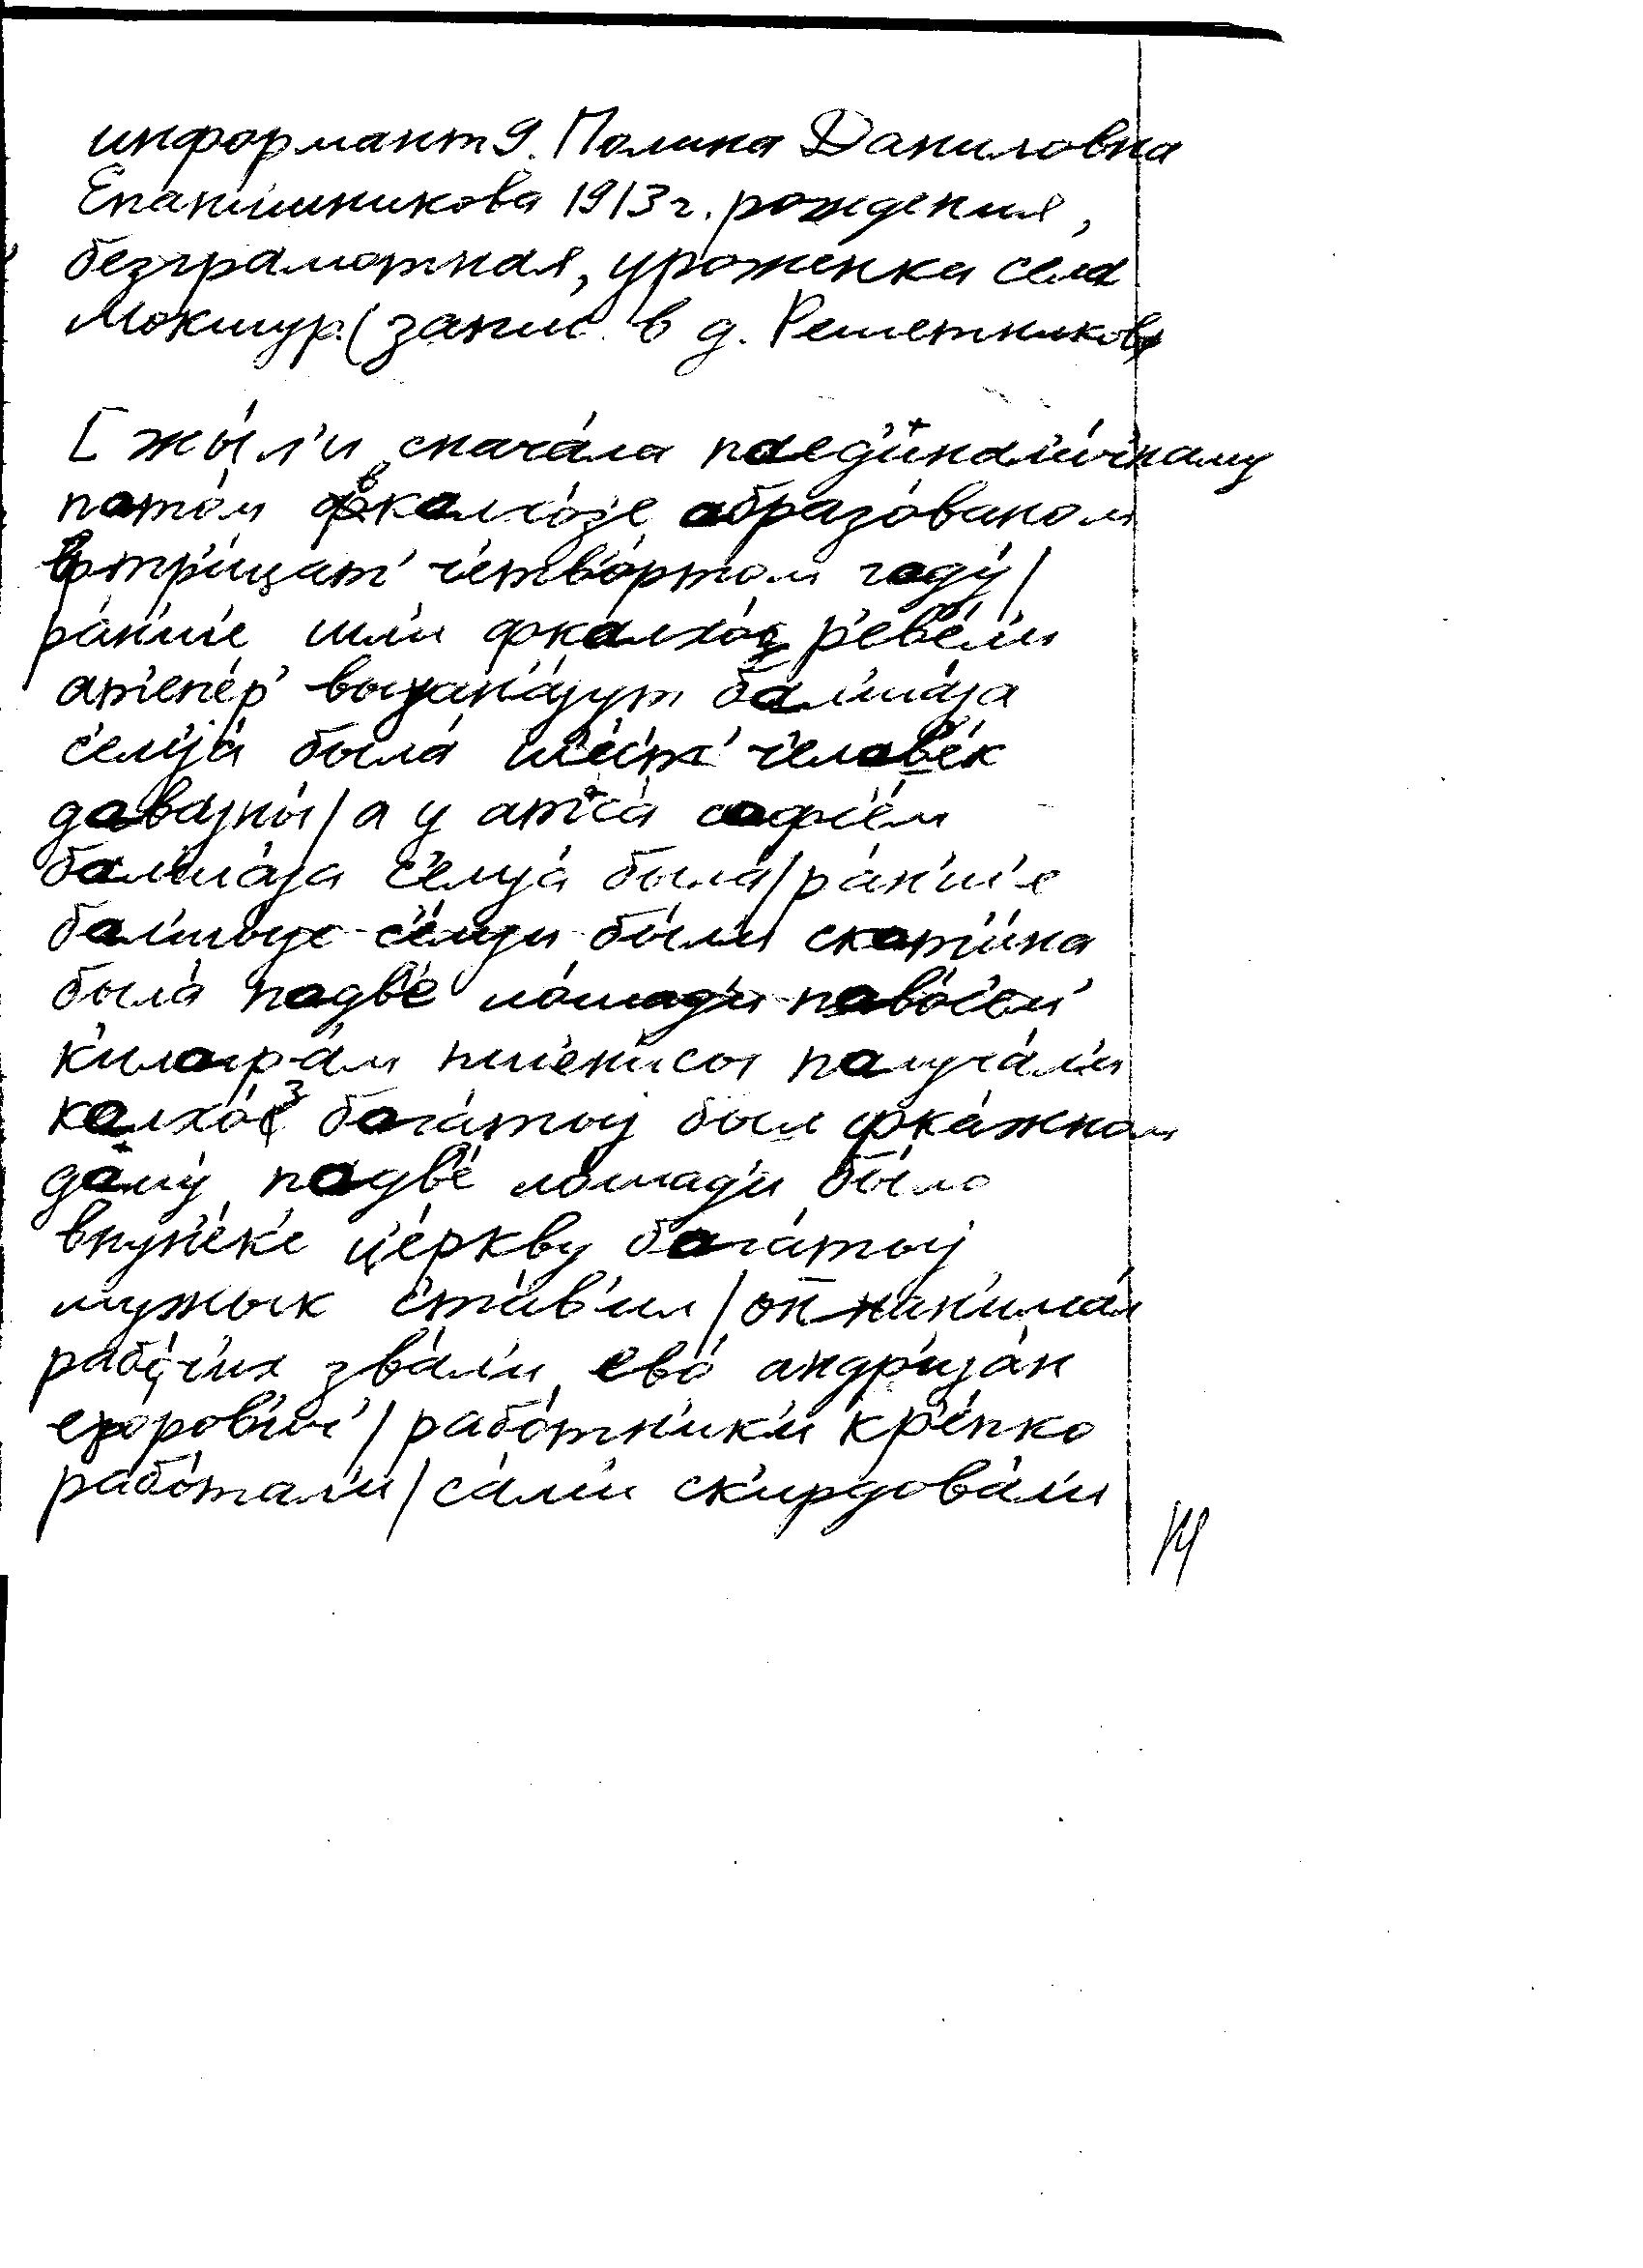 информант 9. Полина Даниловна
Епанишникова 1913 г. рождения,
безграмотная, уроженка села
Мокшур. (запис. в д. Решетникова
[ жы́л'и снача́ла паед'ина́л'ич'наму
пато́м фкалхо́з'е абразо́ваном
втр'и́цат' ч'етв'о́ртом гаду́ /
ра́н'ш'е шл'и фкалхо́з р'ев'е́л'и
ат'еп'е́р' выган'а́јут бал'ша́ја
с'емја́ была́ ш'ес'т' ч'елав'е́к
давајны́ / а у атса́ сафс'е́м
бал'ша́ја с'емја́ была́ / ра́н'ш'е
бал'шыје с'е́мји бы́л'и скат'и́на
была́ падв'е́ ло́шад'и паво́с'ем'
к'илагра́м пш'ен'и́сы палуча́л'и
калхо́з бага́тыј был фка́жном
даму́ падв'е́ ло́шад'и бы́ло
внун'е́к'е це́ркву бага́тыј
мужы́к ста́в'ил / он нан'има́л
рабо́ч'их зва́л'и ево́ андр'ија́н
его́ров'ич' / рабо́тн'ик'и кр'е́пко
рабо́тал'и / са́м'и ск'ирдова́л'и
14